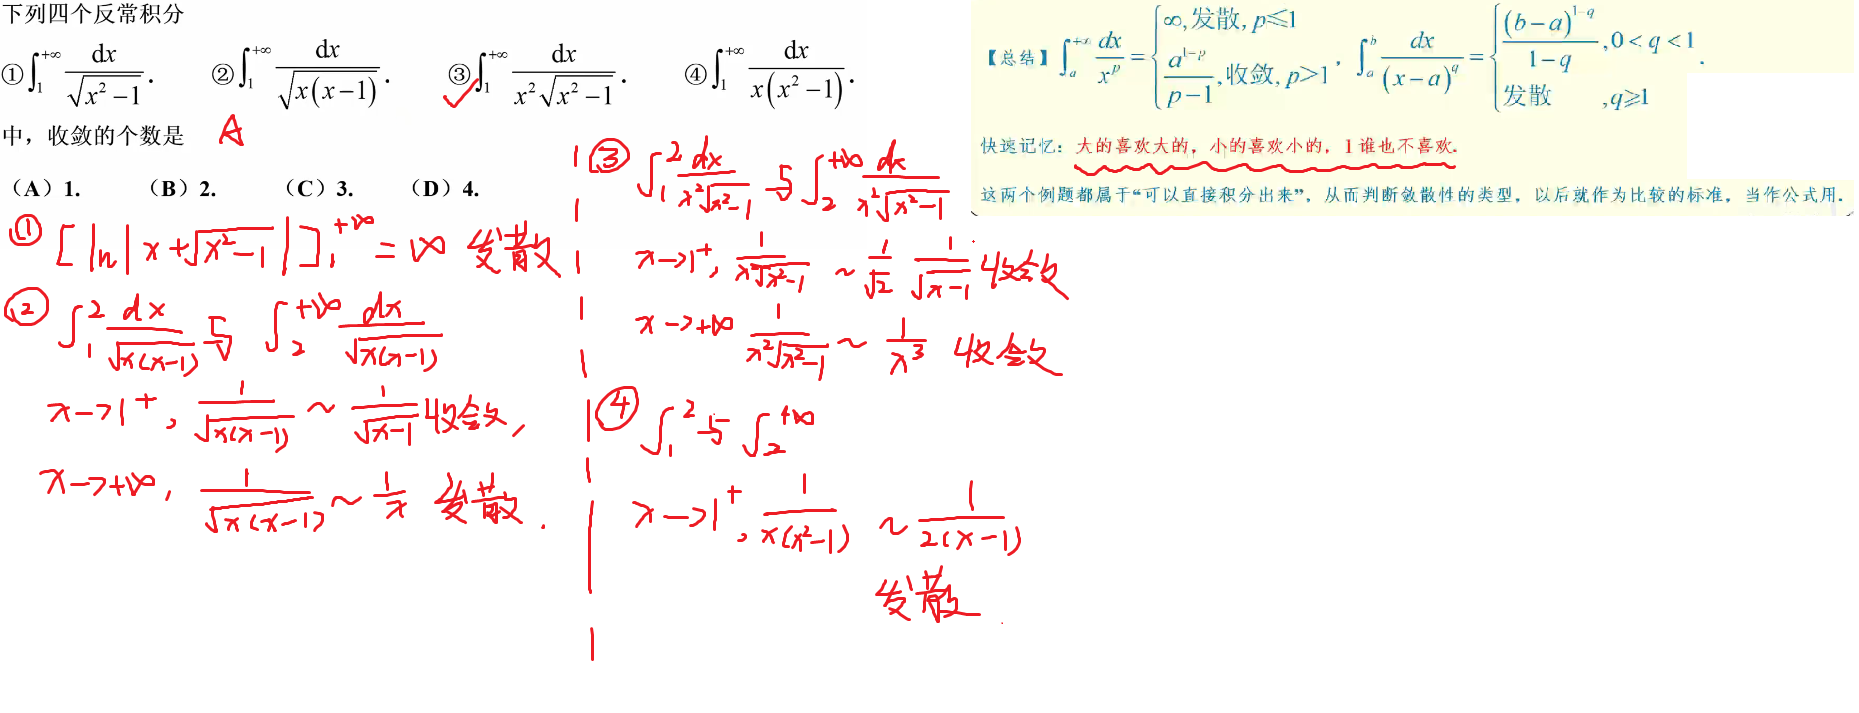 下列四个反常积分
①∫₁^{+∞} dx/√(x²−1).  ②∫₁^{+∞} dx/√(x(x−1)).  ③∫₁^{+∞} dx/(x²√(x²−1)).  ④∫₁^{+∞} dx/(x(x²−1)).
中，收敛的个数是 A
（A）1. （B）2. （C）3. （D）4.
① [ln|x+√(x²−1)|]₁^{+∞} = ∞ 发散
② ∫₁² dx/√(x(x−1)) 与 ∫₂^{+∞} dx/√(x(x−1))
x→1⁺, 1/√(x(x−1)) ~ 1/√(x−1) 收敛,
x→+∞, 1/√(x(x−1)) ~ 1/x 发散.
③ ∫₁² dx/(x²√(x²−1)) 与 ∫₂^{+∞} dx/(x²√(x²−1))
x→1⁺, 1/(x²√(x²−1)) ~ 1/√2 1/√(x−1) 收敛
x→+∞ 1/(x²√(x²−1)) ~ 1/x³ 收敛
④ ∫₁² 与 ∫₂^{+∞}
x→1⁺, 1/(x(x²−1)) ~ 1/(2(x−1))
发散.
【总结】∫ₐ^{+∞} dx/x^p = {∞,发散,p≤1; a^{1−p}/(p−1),收敛,p>1, ∫ₐ^b dx/(x−a)^q = {(b−a)^{1−q}/(1−q),0<q<1; 发散,q≥1.
快速记忆：大的喜欢大的，小的喜欢小的，1谁也不喜欢.
这两个例题都属于“可以直接积分出来”，从而判断敛散性的类型，以后就作为比较的标准，当作公式用.